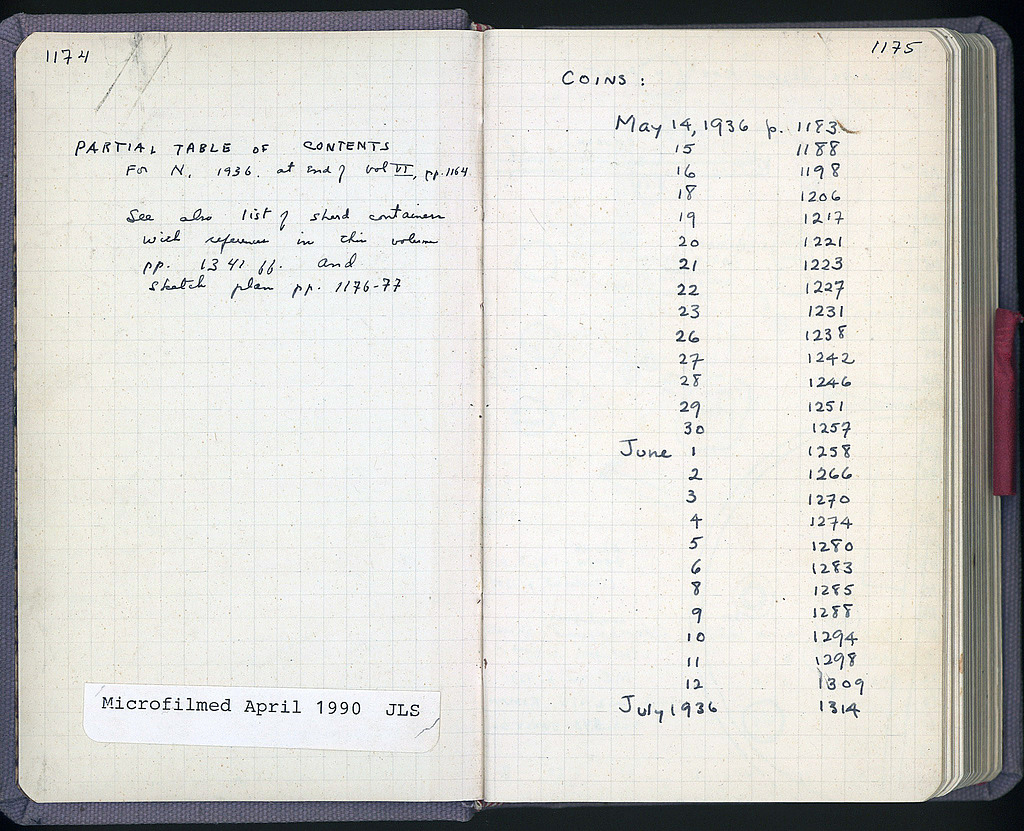 1174
PARTIAL TABLE OF CONTENTS
For N. 1936. at end of vol VI, pp. 1164
See also list of sherd containers
with references in this volume
pp. 1341 ff. and
sketch plan pp. 1176-77
Microfilmed April 1990 JLS
1175
COINS:
May 14, 1936 p. 1183
15 1188
16 1198
18 1206
19 1217
20 1221
21 1223
22 1227
23 1231
26 1238
27 1242
28 1246
29 1251
30 1257
June 1 1258
2 1266
3 1270
4 1274
5 1280
6 1283
8 1285
9 1288
10 1294
11 1298
12 1309
July 1936 1314